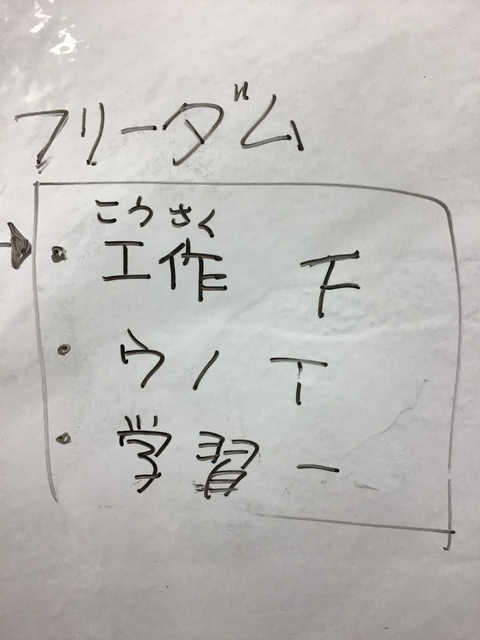 フリーダム
こうさく
・工作 下
・ウノ 丅
・学習 一